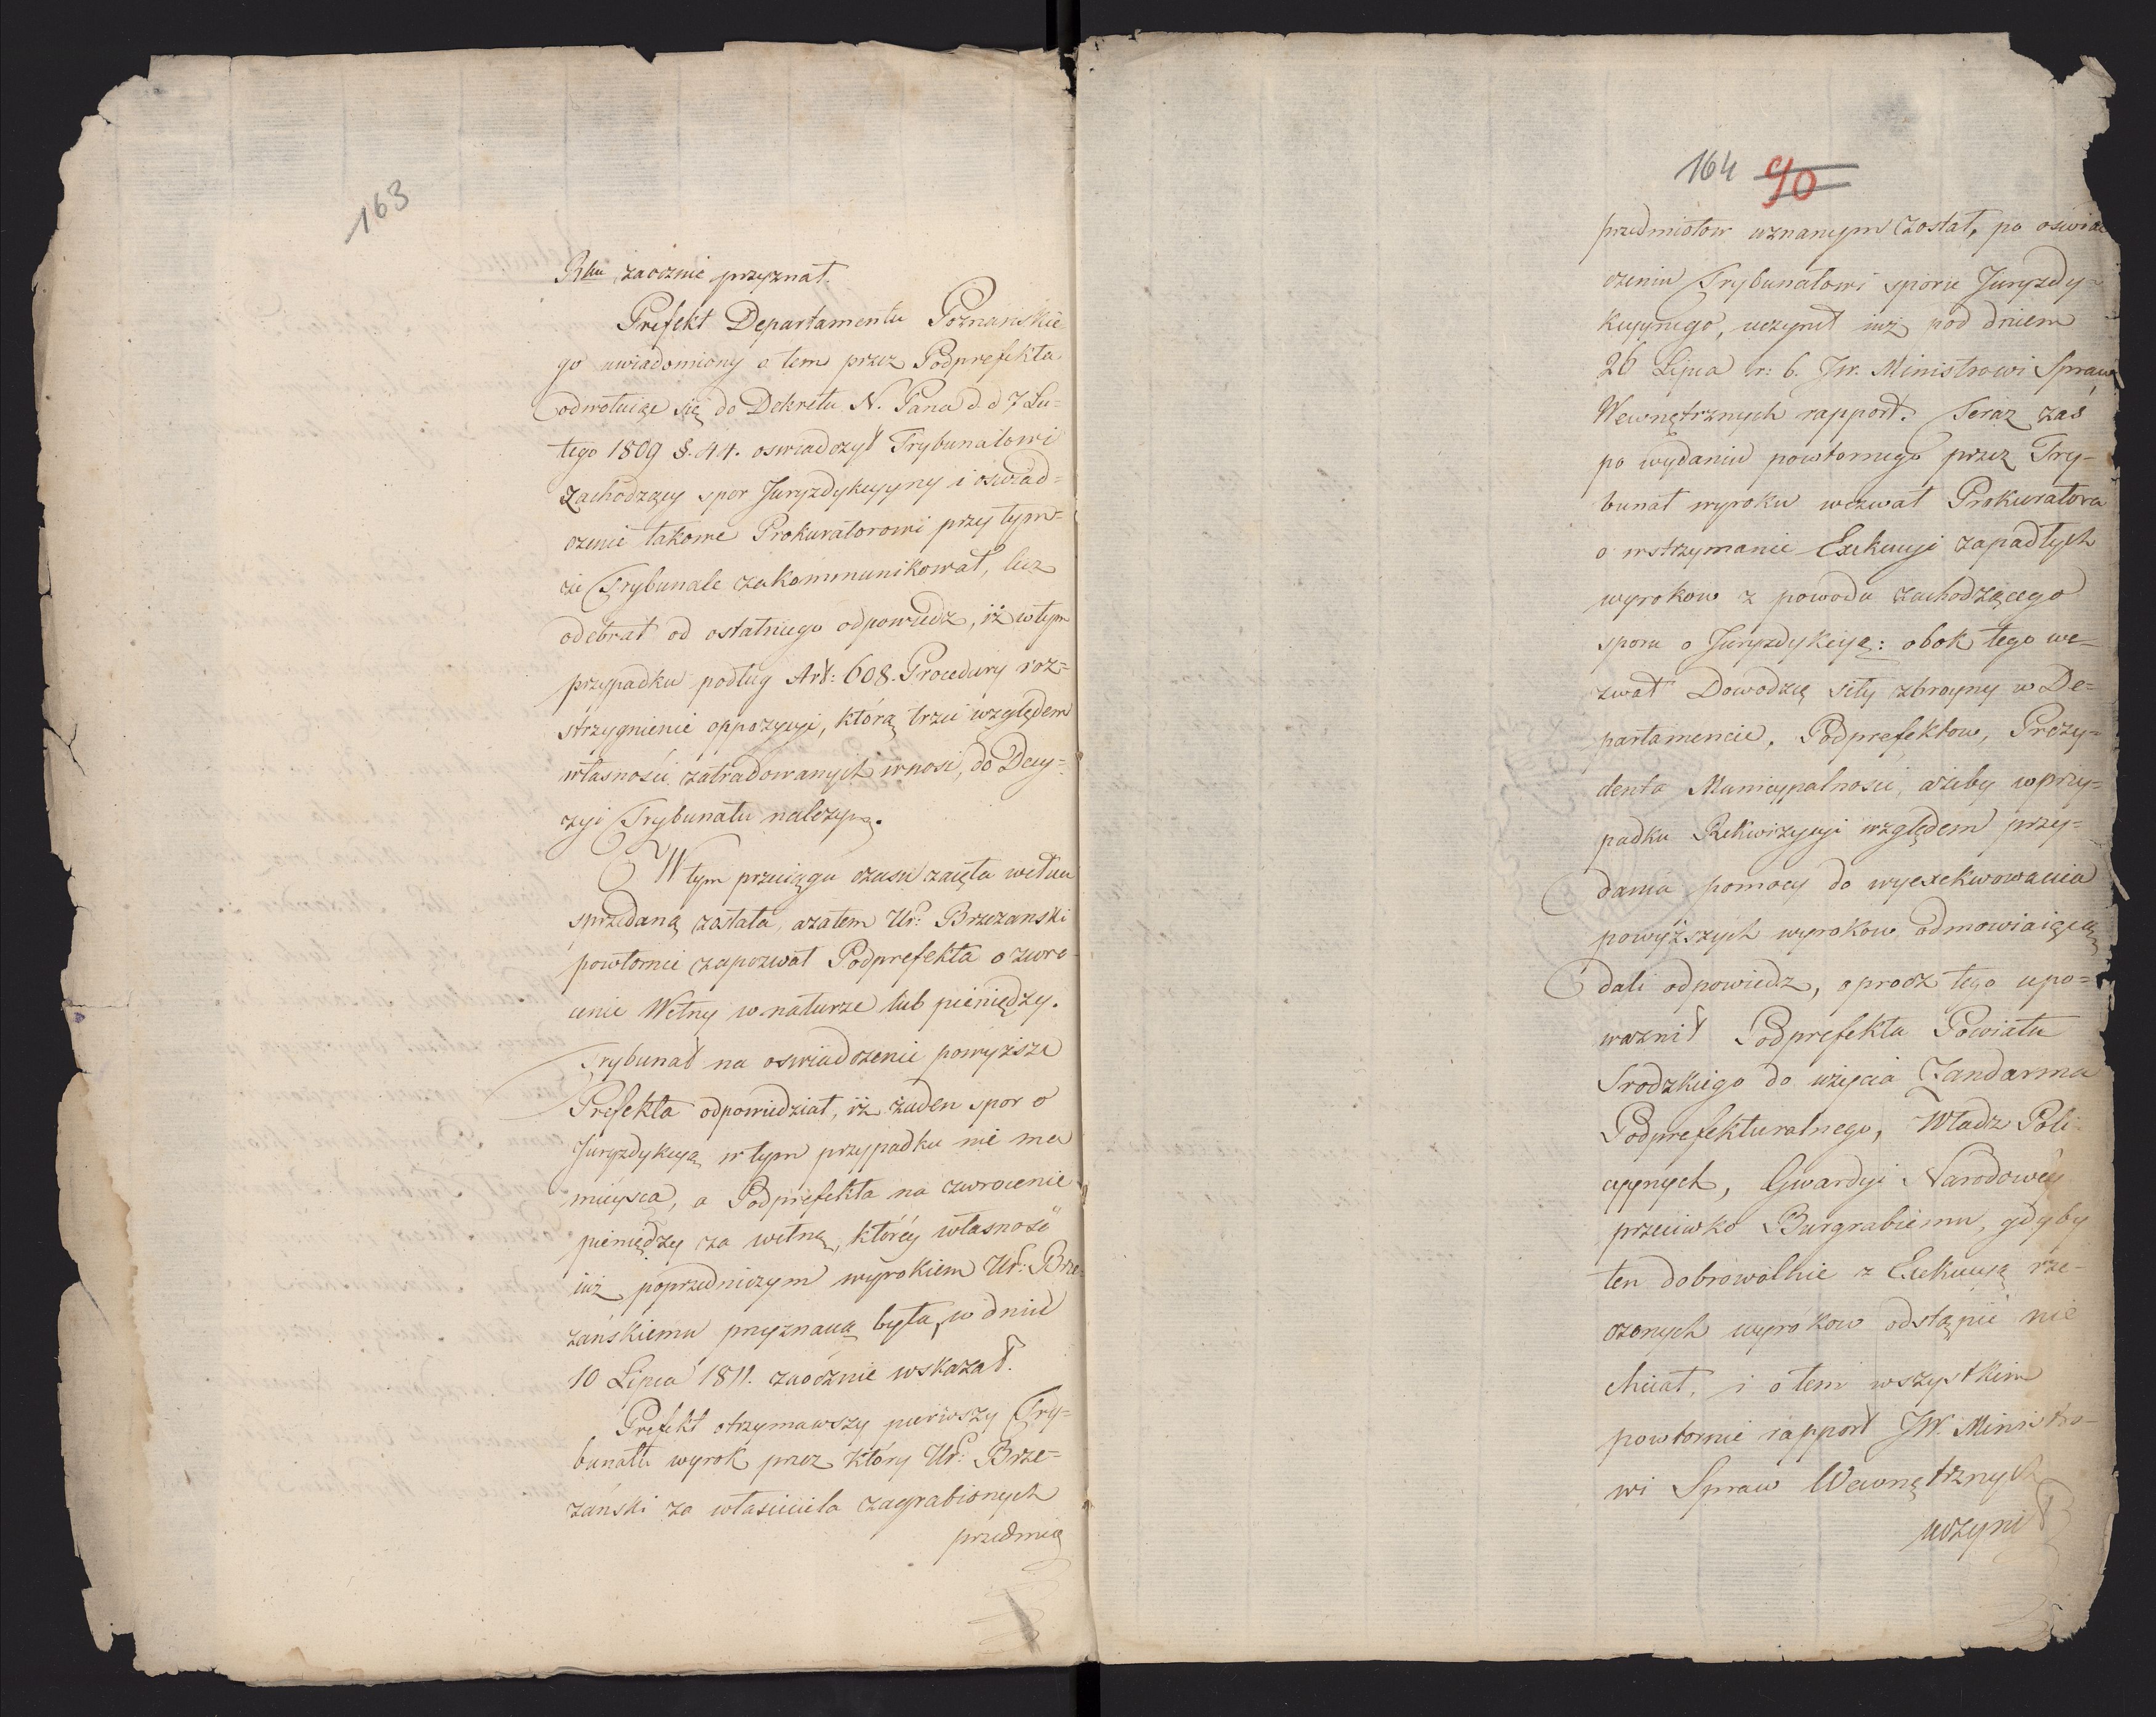 163
Rku zaocznie przyznał.
Prefekt Departamentu Poznańskie
go uwiadomiony o tem przez Podprefekta
odwołuiąc się do Dekretu N. Pana d. d 7 Lu=
tego 1809 §. 44. oswiadczył Trybunałowi
zachodzący spor Juryzdykcyyny i oświad=
czenie takowe Prokuratorowi przy tym=
że Trybunale zakommunikował, lecz
odebrał od ostatniego odpowiedz, iż w tym
przypadku podług Art: 608. Procedury roz=
strzygnienie oppozycyi, którą trzeci względem
własności zatradowanych wnosi, do Decy=
zyi Trybunału należy.
W tym przeciągu czasu zaięta wełna
sprzedaną została, azatem Ur: Brzezanski
powtornie zapozwał Podprefekta o zwro
cenie Wełny w naturze lub pieniędzy.
Trybunał na oswiadczenie powyższe
Prefekta odpowiedział, iż żaden spor o
Juryzdykcyą w tym przypadku nie ma
mieysca, a Podprefekta na zwrocenie
pieniędzy za wełnę, którey własność
iuż poprzedniczym wyrokiem Ur: Brze
zańskiemu przyznaną była, w dniu
10 Lipca 1811. zaocznie wskazał.
Prefekt otrzymawszy pierwszy Try=
bunału wyrok przez który Ur: Brze=
zański za własciciela zagrabionych
przedmio
164 90
przedmiotow uznanym został, po oswiad
czeniu Trybunałowi sporu Juryzdy=
kcyynego, uczynił iuż pod dniem
26 Lipca r: b. Jw. Ministrowi Spraw
Wewnętrznych rapport. Teraz zaś
po wydaniu powtornego przez Try=
bunał wyroku wezwał Prokuratora
o wstrzymanie Exekucyi zapadłych
wyrokow z powodu zachodzącego
sporu o Juryzdykcyą: obok tego we=
zwał Dowodzcę siły zbroyny w De=
partamencie, Podprefektow, Prezy=
denta Municypalnosci, ażeby w przy=
padku Rekwizycyi względem przy=
dania pomocy do wyexekwowania
powyższych wyrokow odmowiaiącą
dali odpowiedz, oprocz tego upo=
ważnił Podprefekta Powiatu
Srodzkiego do użycia Żandarma
Podprefekturalnego, Władz Poli
cyynych, Gwardyi Narodowey
przeciwko Burgrabiemu, gdyby
ten dobrowolnie z Exekucyą rze=
czonych wyrokow odstąpić nie
chciał, i o tem wszystkim
powtornie rapport JW. Ministro=
wi Spraw Wewnętrznych
uczynił